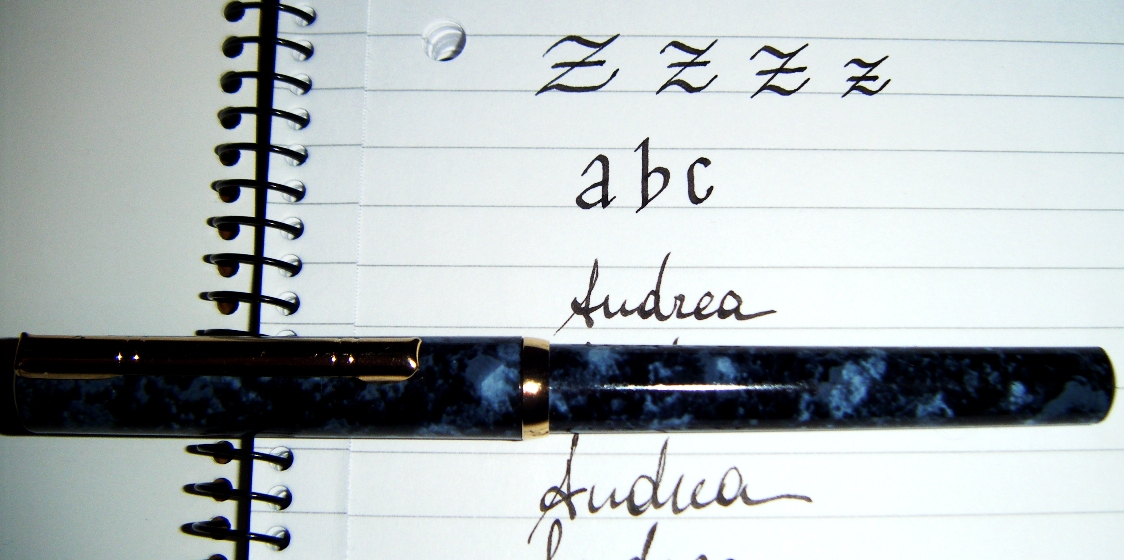 Z z z z
a b c
Andrea
Andrea